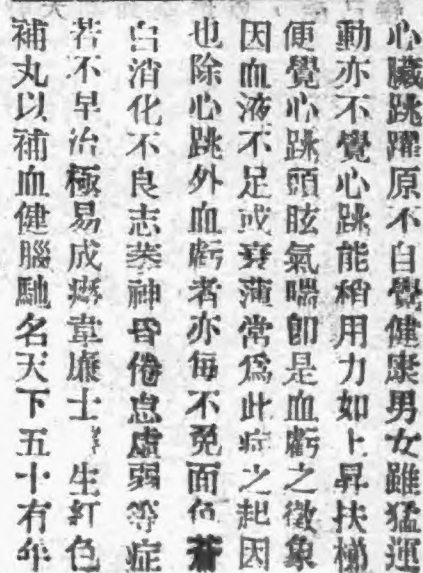 心臟跳躍原不自覺健康男女雖猛運
動亦不覺心跳能稍用力如上昇扶梯
便覺心跳頭眩氣喘卽是血虧之徵象
因血液不足或衰薄常爲此症之起因
也除心跳外血虧者亦每不免面色蒼
白消化不良志萎神昏倦怠虛弱等症
若不早治極易成癆韋廉士 生紅色
補丸以補血健腦馳名天下五十有年